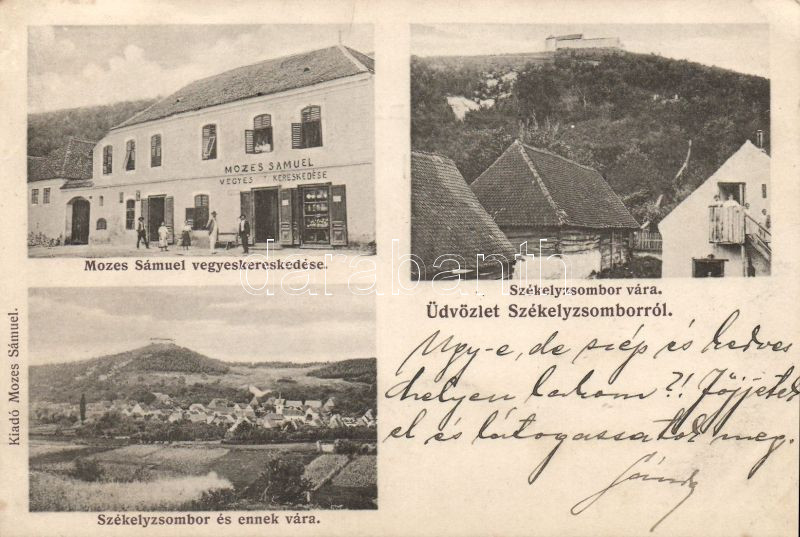 MOZES SÁMUEL
VEGYES KERESKEDÉSE
Mozes Sámuel vegyeskereskedése.
Székelyzsombor vára.
Üdvözlet Székelyzsomborról.
Ugy-e, de szép és kedves
helyen lakom?! Jőjjetek
el és látogassatok meg.
Sándor
Székelyzsombor és ennek vára.
Kiadó Mozes Sámuel.
darabanth.com